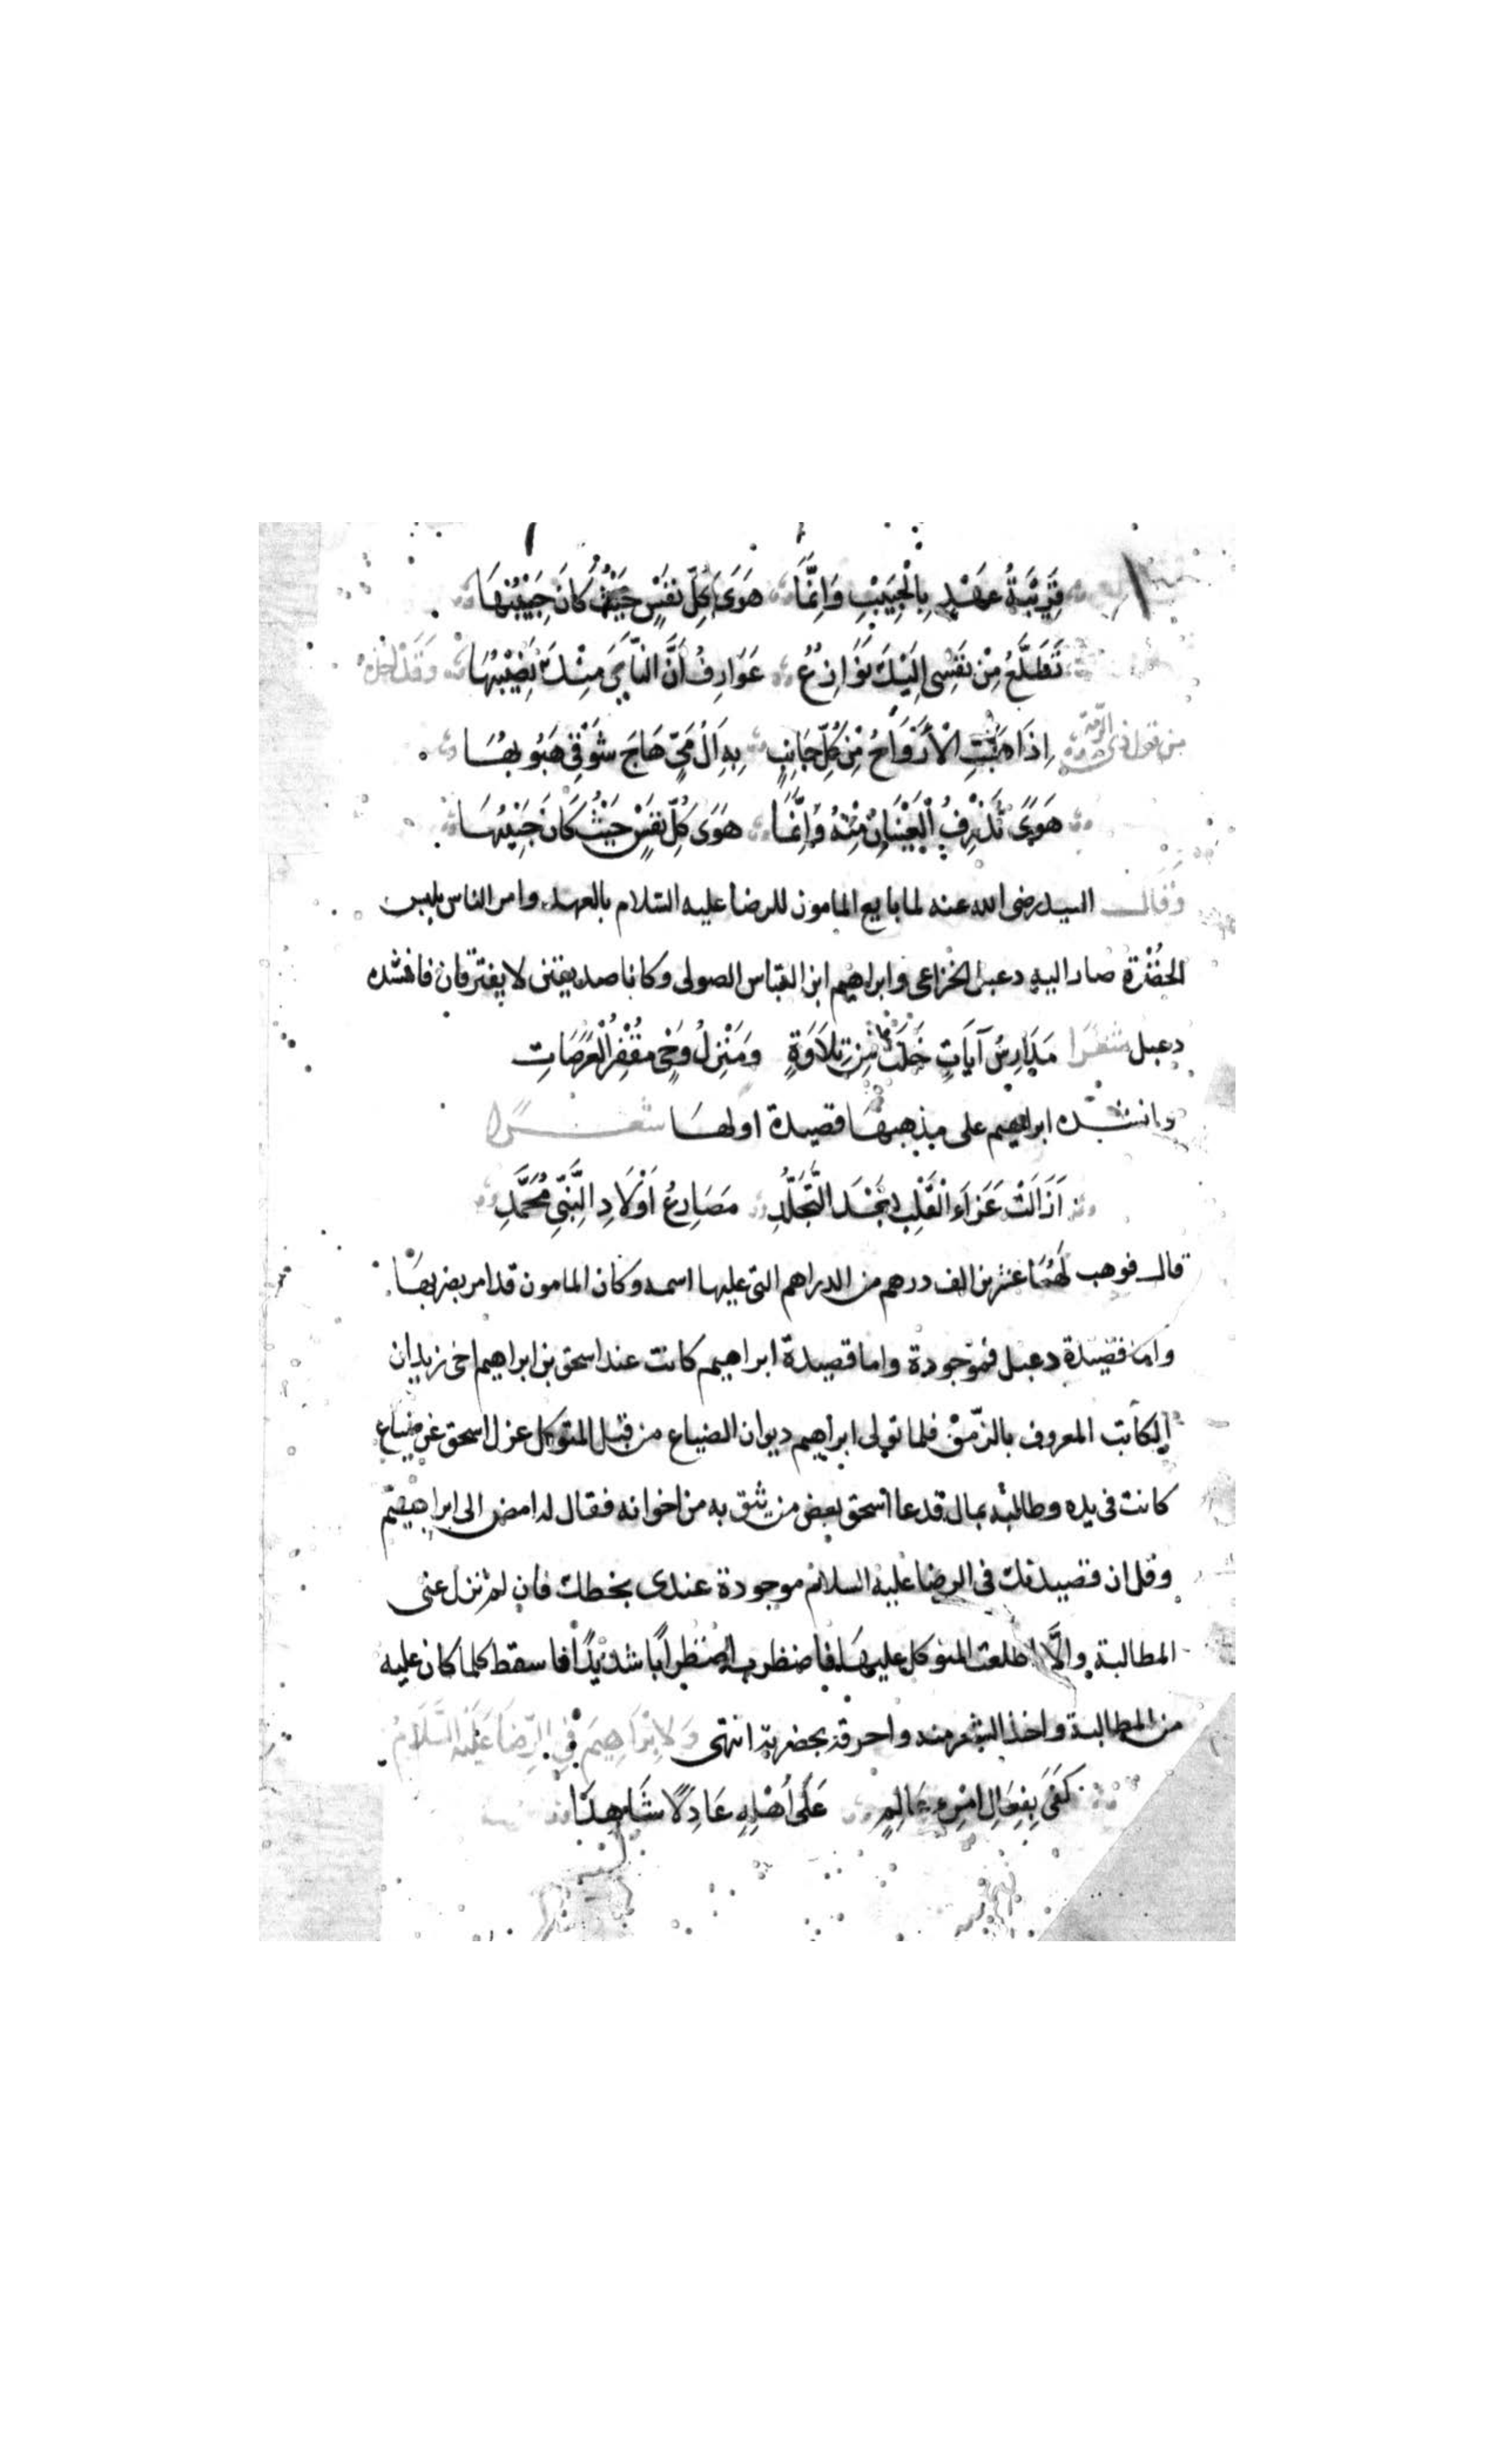 قَرِيْبَةُ عَهْدٍ بِالْحَبِيْبِ وَاِنَّمَا هَوَى كُلِّ نَفْسٍ حَيْثُ كَانَ حَبِيْبُهَا
تَطَلَّعُ مِنْ نَفْسِى اِلَيْكَ نَوَازِعُ عَوَارِفُ اَنَّ النَّأْىَ مِنْكَ نَصِيْبُهَا وَقَدْ اخذه
من قول ذى الرّمّة اِذَا هَبَّتِ الْأَرْوَاحُ مِنْ كُلِّ جَانِبٍ بِهِ اٰلُ مَىٍّ هَاجَ شَوْقِى هُبُوبُهَا
هَوًى تَذْرِفُ الْعَيْنَانِ مِنْهُ وَاِنَّمَا هَوَى كُلِّ نَفْسٍ حَيْثُ كَانَ حَبِيْبُهَا
وَقَالَ السيد رضى الله عنه لما بايع المامون للرضا عليه السّلام بالعهد وامر الناس بلبس
الخُضْرَة صار اليه دعبل الخزاعى وابراهيم ابن العبّاس الصولى وكانا صديقين لا يفترقان فانشده
دعبل شعْرًا مَدَارِسُ آيَاتٍ خَلَتْ مِنْ تِلَاوَةٍ وَمَنْزِلُ وَحْىٍ مُقْفِرُ الْعَرَصَاتِ
وانشده ابراهيم على مذهبها قصيدة اولها شعرًا
اَزَالَتْ عَزَاءَ الْقَلْبِ بَعْدَ التَّجَلُّدِ مَصَارِعُ اَوْلَادِ النَّبِىِّ مُحَمَّدِ
قال فوهب لَهُمَا عشرين الف درهم من الدراهم التى عليها اسمه وكان المامون قد امر بضربها
واما قصيدة دعبل فموجودة واما قصيدة ابراهيم كانت عند اسحق بن ابراهيم اخى زيدان
الكاتب المعروف بالزّمِن فلما تولى ابراهيم ديوان الضياع من قبل المتوكل عزل اسحق عن ضياع
كانت فى يده وطالبه بمال فدعا اسحق بعض من يثق به من اخوانه فقال له امض الى ابراهيم
وقل ان قصيدتك فى الرضا عليه السلام موجودة عندى بخطك فان لم تزل عنى
المطالبة والّا اطلعت المتوكل عليها فاضظرب اضظرابًا شديدًا فاسقط كلما كان عليه
من المطالبة واخذ الشعر منه واحرقه بحضرته انتهى وَلاِبْرَاهِيمَ فِى الرِّضَا عَلَيْهِ السَّلَامُ
كَفَى بِفِعَالِ امْرِءٍ عَالِمٍ عَلَى اَهْلِهِ عَادِلًا شَاهِدَا